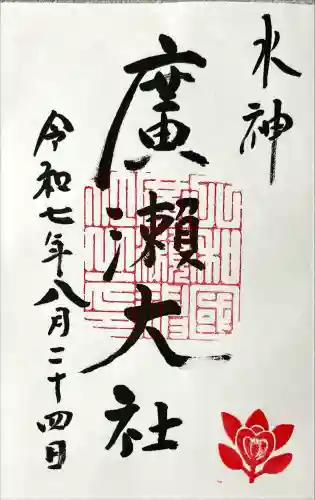 水神
廣瀬大社
令和七年八月二十四日